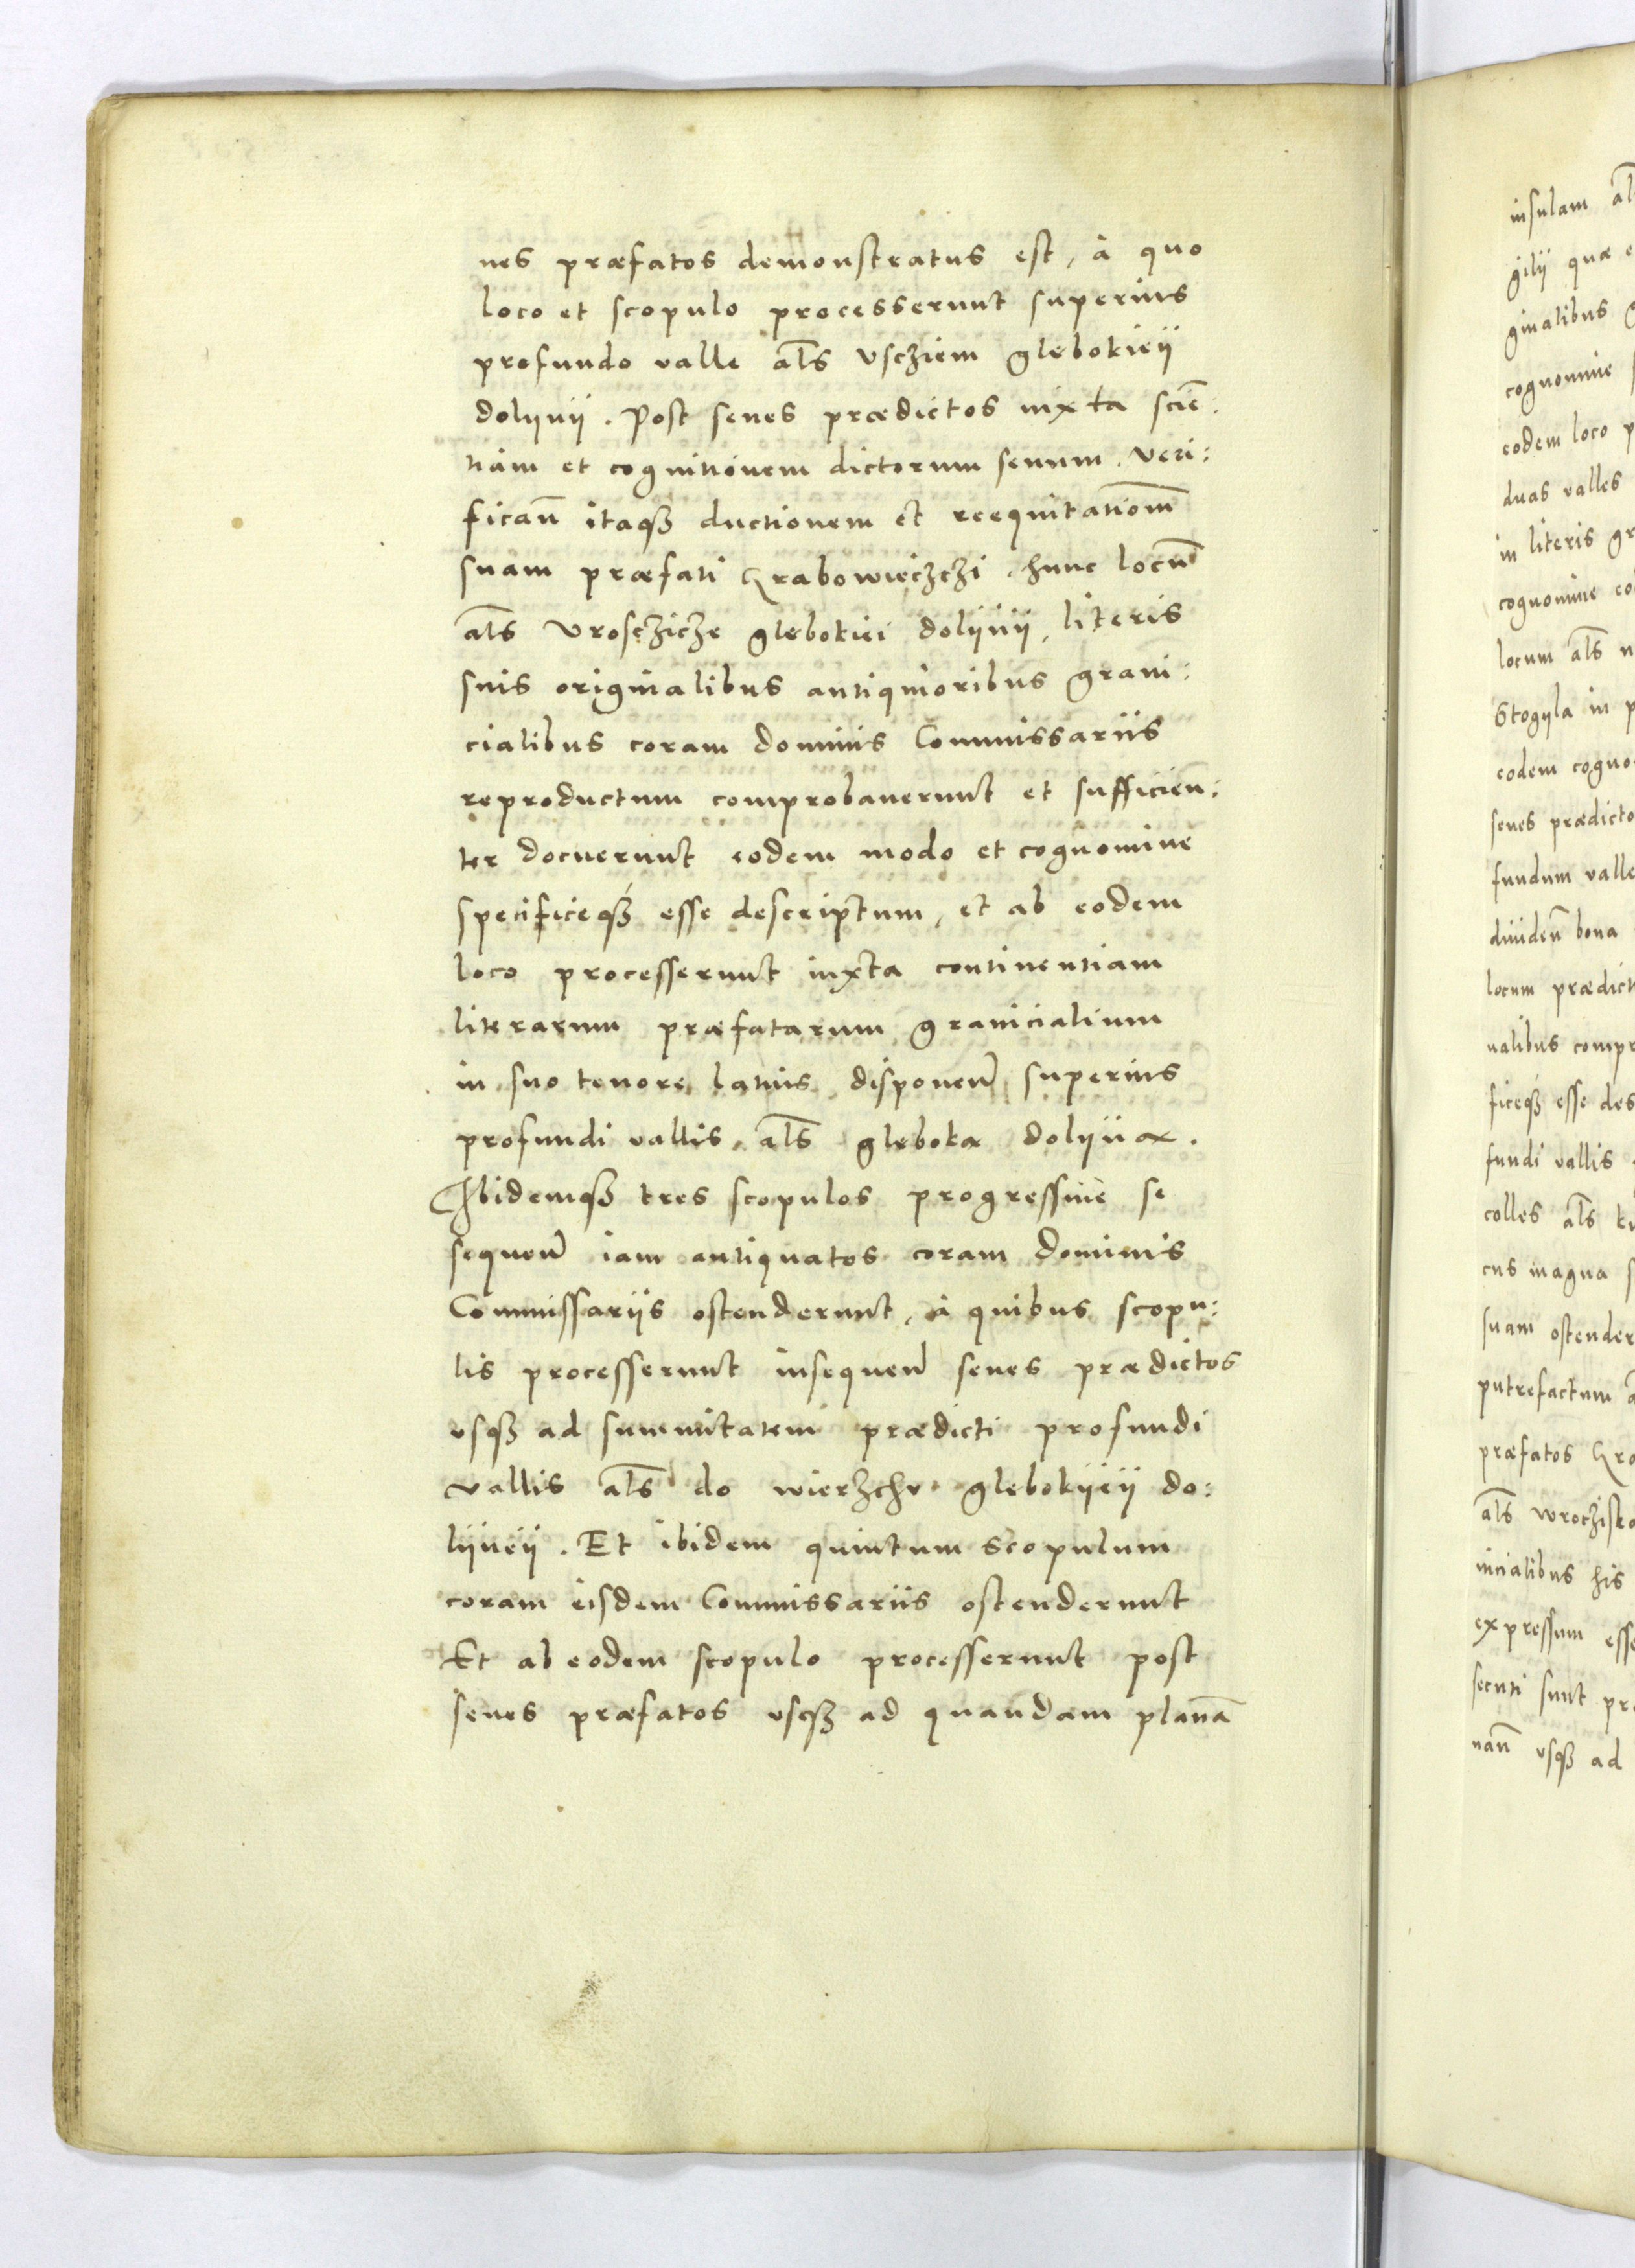 nes præfatos demonstratus est, à quo
loco et scopulo processerunt superius
profundo valle al̃s Vscziem glebokieÿ
dolÿnÿ. Post senes prædictos iuxta sciẽ:
tiam et cognitionem dictorum senum. Veri:
ficañ itaqȝ ductionem et reequitationẽm
suam præfati Grabowieczczi. hunc locũ
al̃s Vrosczicze glebokiei dolÿnÿ, literis
suis originalibus antiquioribus grani:
cialibus coram dominis Commissariis
reproductum comprobauerunt et sufficien:
ter docuerunt eodem modo et cognomine
specificeqȝ esse descriptum, et ab eodem
loco processerunt iuxta continentiam
literarum præfatarum granicialium
in suo tenore latius disponeñ superius
profundi vallis al̃s gleboka dolÿna.
Ibidemqȝ tres scopulos progressiue se
sequeñ iam antiquatos coram dominis
Commissariis ostenderunt, à quibus scopu:
lis processerunt insequeñ senes prædictos
vsqȝ ad summitatem prædicti profundi
vallis al̃s do wierzchv glebokÿeÿ do:
lÿneÿ. Et ibidem quintum scopulum
coram eisdem Commissariis ostenderunt
Et ab eodem scopulo processerunt post
senes præfatos vsqȝ ad quandam planã
insulam al
gilÿ quæ e
ginalibus g
cognomine
eodem loco p
duas valles
in literis gr
cognomine eo
locum al̃s n
Stogÿla in p
eodem cogno
senes prædicto
fundum valle
diuideñ bona
locum prædict
nalibus compr
ficeqȝ esse des
fundi vallis
colles al̃s k
cus magna s
suam ostender
putrefactum a
præfatos Gra
al̃s wroczisko
nicialibus his
expressum esse
secuti sunt pr
nañ vsqȝ ad